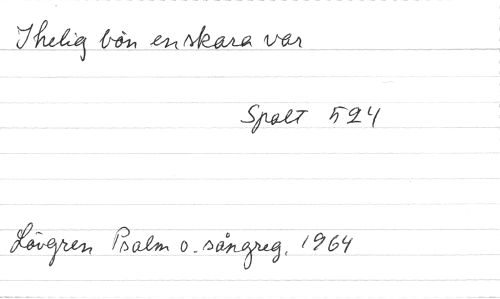 I helig bön en skara var
Spalt 524
Lövgren Psalm o. sångreg. 1964